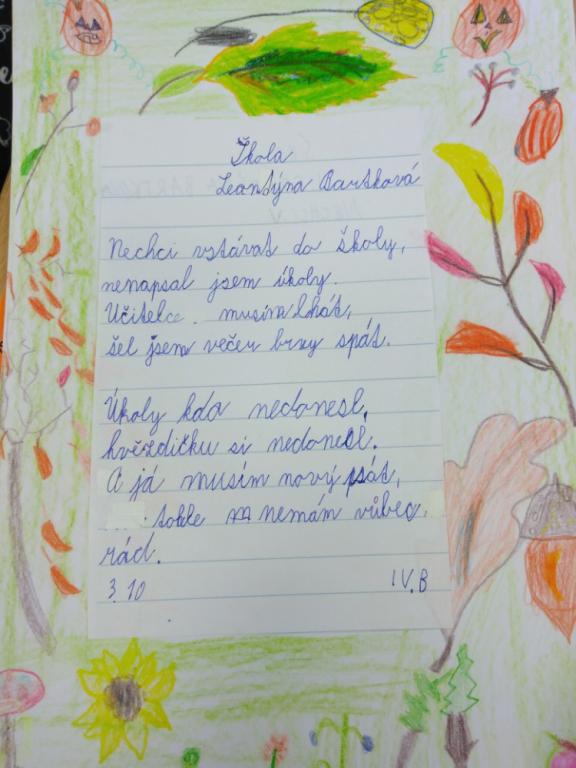 Škola
Leantýna Bartková
Nechci vstávat do školy,
nenapsal jsem úkoly.
Učitelce musím lhát,
šel jsem večer brzy spát.
Úkoly kdo nedonesl,
hvězdičku si nedonesl.
A já musím nový psát,
tohle nemám vůbec
rád.
3. 10 IV.B